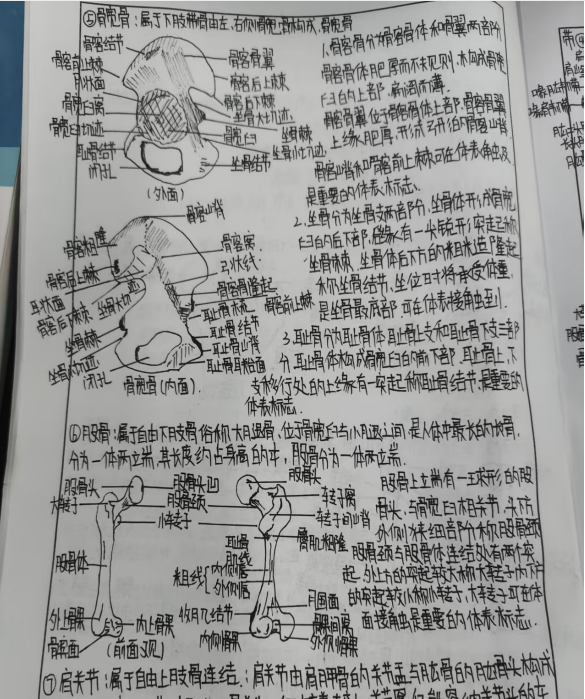 ⑤髋骨:属于下肢带骨由左、右侧髋骨构成,髋骨
髂结节
髂前上棘
月状面
髋臼窝
髋臼切迹
耻骨结节
闭孔
髂骨翼
髂后上棘
髂后下棘
坐骨大切迹
髋臼
坐骨棘
坐骨小切迹
坐骨结节
(外面)
1.髂骨分为髂骨体和髂骨翼两部分
髂骨体肥厚而不规则,构成髋
臼的上部,
髂骨翼位于髂骨体上部,髂骨翼
上缘肥厚,形成弓形的髂嵴
髂嵴和髂前上棘可在体表触及
是重要的体表标志.
2.坐骨分为坐骨支两部分,坐骨体形成髋
臼的后下部,后缘有一尖锐形突起称
坐骨棘,坐骨体后下的粗糙隆起
称坐骨结节,坐位时承受体重,
是坐骨最底部,可在体表接触到.
3.耻骨分为耻骨体,耻骨上支和耻骨下支三部
分,耻骨体构成髋臼的前下部,耻骨上、下
支移行处的上缘有一突起称耻骨结节,是重要的
体表标志.
髂嵴
髂粗隆
髂后上棘
耳状面
髂后下棘
坐骨大切迹
坐骨棘
坐骨小切迹
闭孔
髂窝
弓状线
髂骨隆起
髂前上棘
耻骨梳
耻骨结节
耻骨嵴
耻骨粗面
髋骨(内面).
⑥股骨:属于自由下肢骨俗称大腿骨,位于髋臼与小腿之间,是人体中最长的长骨,
分为一体两立端,其长度约占身高的,股骨分为一体两立端.
股骨头
大转子
股骨头凹
股骨颈
小转子
股骨体
外上髁
髌面
内上髁
(前面观)
股骨头
转子窝
转子间嵴
臀肌粗隆
耻骨肌线
粗线
内侧唇
外侧唇
收肌结节
内侧髁
腘面
髁间窝
外侧髁
股骨上立端有一球形的股
骨头,与髋臼相关节,头下方
外侧狭细部分称股骨颈
股骨颈与股骨体连结处有两个突
起,外上方的突起较大称大转子,内下方
的突起较小称小转子,大转子可在体
面接触是重要的体表标志.
⑦肩关节:属于自由上肢骨连结.:肩关节由肩胛骨的关节盂与肱骨的肱骨头构成